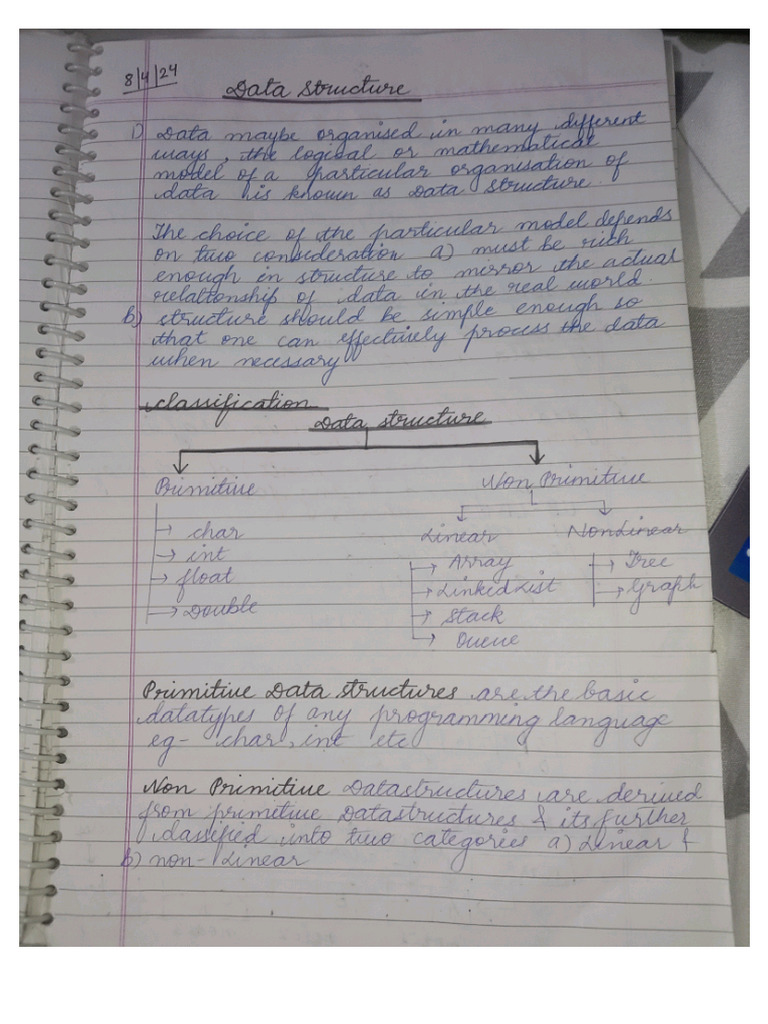 8/4/24
Data Structure
1) Data maybe organised in many different
ways, the logical or mathematical
model of a particular organisation of
data is known as Data structure.
The choice of the particular model depends
on two consideration a) must be rich
enough in structure to mirror the actual
relationship of data in the real world.
b) structure should be simple enough so
that one can effectively process the data
when necessary
Classification
Data structure
Primitive
Non Primitive
char
int
float
Double
Linear
Array
LinkedList
Stack
Queue
NonLinear
Tree
Graph
Primitive Data structures are the basic
datatypes of any programming language
eg- char, int etc
Non Primitive Datastructures are derived
from primitive Datastructures & its further
classified into two categories a) Linear &
b) non-Linear